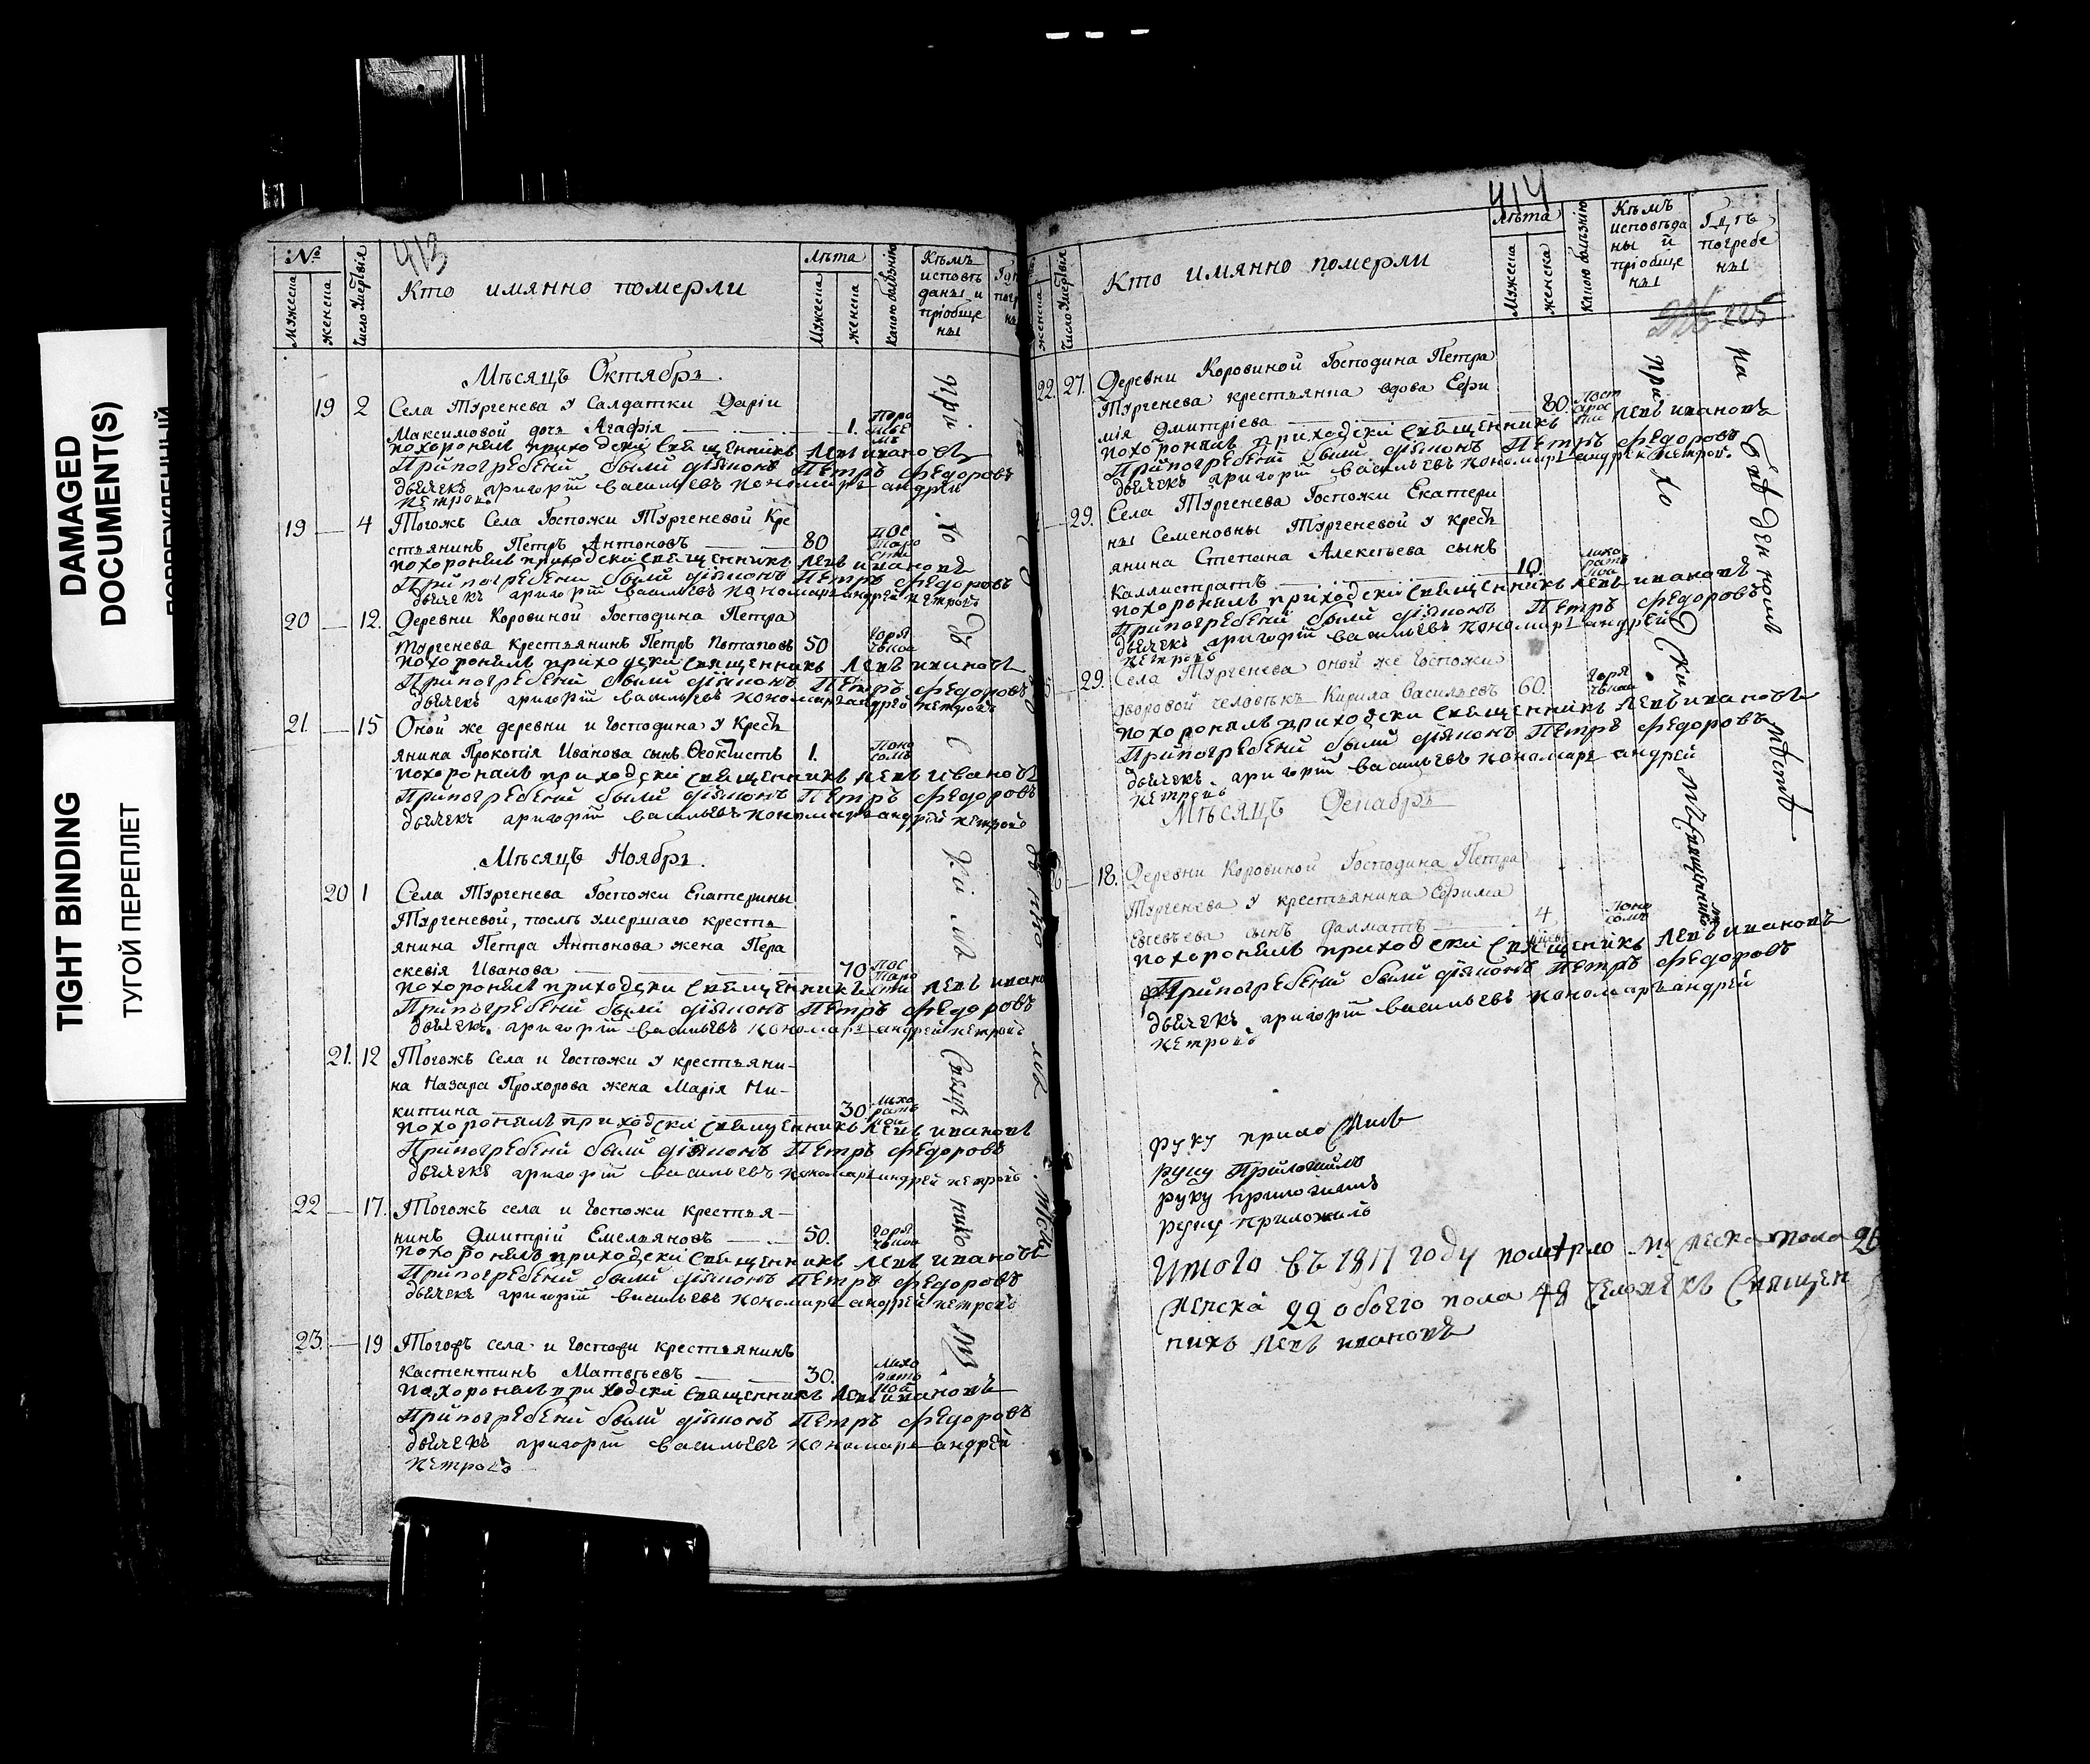 DAMAGED
DOCUMENT(S)
TIGHT BINDING
ТУГОЙ ПЕРЕПЛЕТ
413
№
Мужеска
женска
Число Умертвія
Кто имянно померли
Лѣта
Мужеска
женска
Какою болѣзнію
Кѣмъ
исповѣ
даны и
пріобще
ны
Мѣсяцъ Октябрь.
19 2 Села Тургенева у Салдатки Даріи
Максимовой дочь Агафія 1.
похоронилъ приходскій священникъ Левъ Ивановъ
Припогребеніи были діаконъ Петръ Федоровъ
дьячекъ григорій васильевъ пономарь андрей
петровъ
19 4 Тогожъ Села Госпожи Тургеневой Кре
стьянинъ Петръ Антоновъ 80 пос
таро
сти
похоронилъ приходскій священникъ Левъ Ивановъ
Припогребеніи были діаконъ Петръ Федоровъ
дьячекъ григорій васильевъ пономарь андрей петровъ
20 12. Деревни Коровиной Господина Петра
Тургенева крестьянинъ Петръ Потаповъ 50 горя
чкою
похоронилъ приходскій священникъ Левъ Ивановъ
Припогребеніи были діаконъ Петръ Федоровъ
дьячекъ григорій васильевъ пономарь андрей петровъ
21. 15 Оной же деревни и Господина у Кресть
янина Прокопія Иванова сынъ Ѳеоктистъ 1. поно
сомъ
похоронилъ приходскій священникъ Левъ Ивановъ
Припогребеніи были діаконъ Петръ Федоровъ
дьячекъ григорій васильевъ пономарь андрей петровъ
Мѣсяцъ Ноябрь.
20 1 Села Тургенева Госпожи Екатерины
Тургеневой, послѣ умершаго кресть
янина Петра Антонова жена Пера
скевія Иванова 70 пос
таро
сти
похоронилъ приходскій священникъ Левъ Ивано
Припогребеніи были діаконъ Петръ Федоровъ
дьячекъ григорій васильевъ пономарь андрей петровъ
21. 12 Тогожъ Села и Госпожи у крестьяни-
на Назара Прохорова жена Марія Ни-
китина 30 лихо
рать
кой
похоронилъ приходскій священникъ Левъ Ивановъ
Припогребеніи были діаконъ Петръ Федоровъ
дьячекъ григорій васильевъ пономарь андрей петровъ
22 17. Тогожъ села и Госпожи крестья-
нинъ Дмитрій Емельяновъ 50. горя
чкою
похоронилъ приходскій священникъ Левъ Ивановъ
Припогребеніи были діаконъ Петръ Федоровъ
дьячекъ григорій васильевъ пономарь андрей петровъ
23. 19 Тогожъ села и Госпожи крестьянинъ
Кастентинъ Матвѣевъ 30. лихо
рать
кой
похоронилъ приходскій священникъ Левъ Ивановъ
Припогребеніи были діаконъ Петръ Федоровъ
дьячекъ григорій васильевъ пономарь андрей
петровъ
при хо дс кі мъ Свящ нико мъ
414
женска
Число Умертвія
Кто имянно померли
Лѣта
Мужеска
женска
Какою болѣзнію
Кѣмъ
исповѣда
ны и
пріобще
ны
Гдѣ
погребе
ны
225
22. 27. Деревни Коровиной Господина Петра
Тургенева крестьянка вдова Ефи
мія Дмитріева 80.
похоронилъ приходскій священникъ Левъ Ивановъ
Припогребеніи были діаконъ Петръ Федоровъ
дьячекъ григорій васильевъ пономарь андрей петровъ.
29. Села Тургенева Госпожи Екатери
ны Семеновны Тургеневой у кресть
янина Степана Алексѣева сынъ
Каллистратъ 10. лихо
рать
кой
похоронилъ приходскій священникъ Левъ Ивановъ
Припогребеніи были діаконъ Петръ Федоровъ
дьячекъ григорій васильевъ пономарь андрей
петровъ
29. Села Тургенева оной же Госпожи
дворовой человѣкъ Кирила Васильевъ 60. горя
чкою
похоронилъ приходскій священникъ Левъ Ивановъ
Припогребеніи были діаконъ Петръ Федоровъ
дьячекъ григорій васильевъ пономарь андрей
петровъ
Мѣсяцъ Декабрь
18. Деревни Коровиной Господина Петра
Тургенева у крестьянина Ефима
Евсевьева сынъ Далматъ 4 поно
сомъ
похоронилъ приходскій священникъ Левъ Ивановъ
Припогребеніи были діаконъ Петръ Федоровъ
дьячекъ григорій васильевъ пономарь андрей
петровъ
руку приложилъ
руку Приложилъ
руку приложилъ
руку приложилъ
Итого въ 1811 году померло мужеска пола 26
женска 22 обоего пола 48 человекъ Священ
никъ Левъ Ивановъ